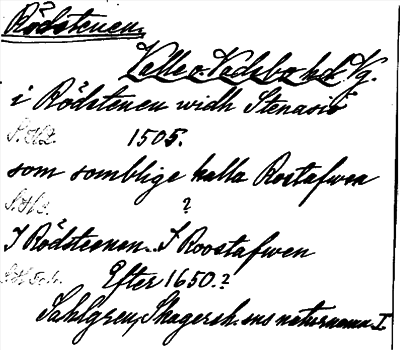 Rödstenen
Valle o. Vadsbo hd. Vg.
i Rödstenen widh Stenasiö
S.H.2. 1505.
som somblige kalla Rostafwen
S.H.3. ?
I Rödsteenen.. I Roostafwen
Efter 1650.?
Sahlgren, Skagersh. sns naturnamn I.